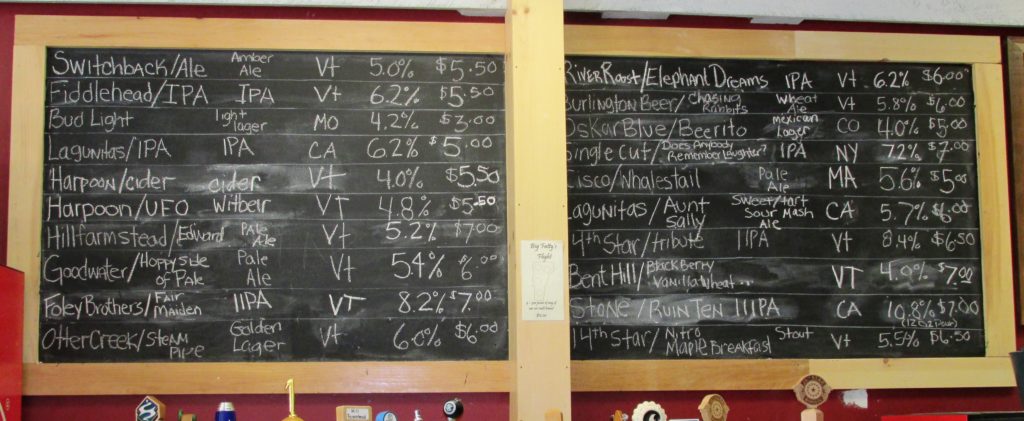 Switchback/Ale Amber Ale Vt 5.0% $5.50
Fiddlehead/IPA IPA Vt 6.2% $5.50
Bud Light light lager MO 4.2% $3.00
Lagunitas/IPA IPA CA 6.2% $5.00
Harpoon/cider cider VT 4.0% $5.50
Harpoon/UFO Witbeir VT 4.8% $5.50
Hillfarmstead/Edward Pale Ale Vt 5.2% $7.00
Goodwater/Hoppy Side of Pale Pale Ale Vt 5.4% $6.00
Foley Brothers/Fair Maiden IIPA VT 8.2% $7.00
Otter Creek/Steam Pipe Golden Lager Vt 6.0% $6.00
Big Fatty's
Flight
River Roost/Elephant Dreams IPA Vt 6.2% $6.00
Burlington Beer/Chasing Rabbits Wheat Ale Vt 5.8% $6.00
Oskar Blue/Beerito mexican Lager CO 4.0% $5.00
Single Cut/Does Anybody Remember laughter? IPA NY 7.2% $7.00
Cisco/Whalestail Pale Ale MA 5.6% $5.00
Lagunitas/Aunt Sally Sweet/tart Sour Mash Ale CA 5.7% $6.00
14th Star/Tribute IIPA Vt 8.4% $6.50
Bent Hill/BlackBerry Vanilla Wheat... VT 4.9% $7.00
Stone/Ruin Ten IIIPA CA 10.8% $7.00
(12 oz pour)
14th Star/Nitro Maple Breakfast Stout Vt 5.5% $6.50